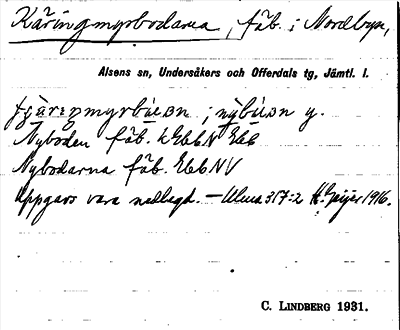 Käringmyrbodarna, fäb. i Nordbyn,
Alsens sn, Undersåkers och Offerdals tg, Jämtl. l.
Nyboden fäb. LEbbN Ebb
Nybodarna fäb. EbbNV
Uppgavs vara nedlagd. — Ulma 317:2 H. Geijer 1916.
C. LINDBERG 1931.